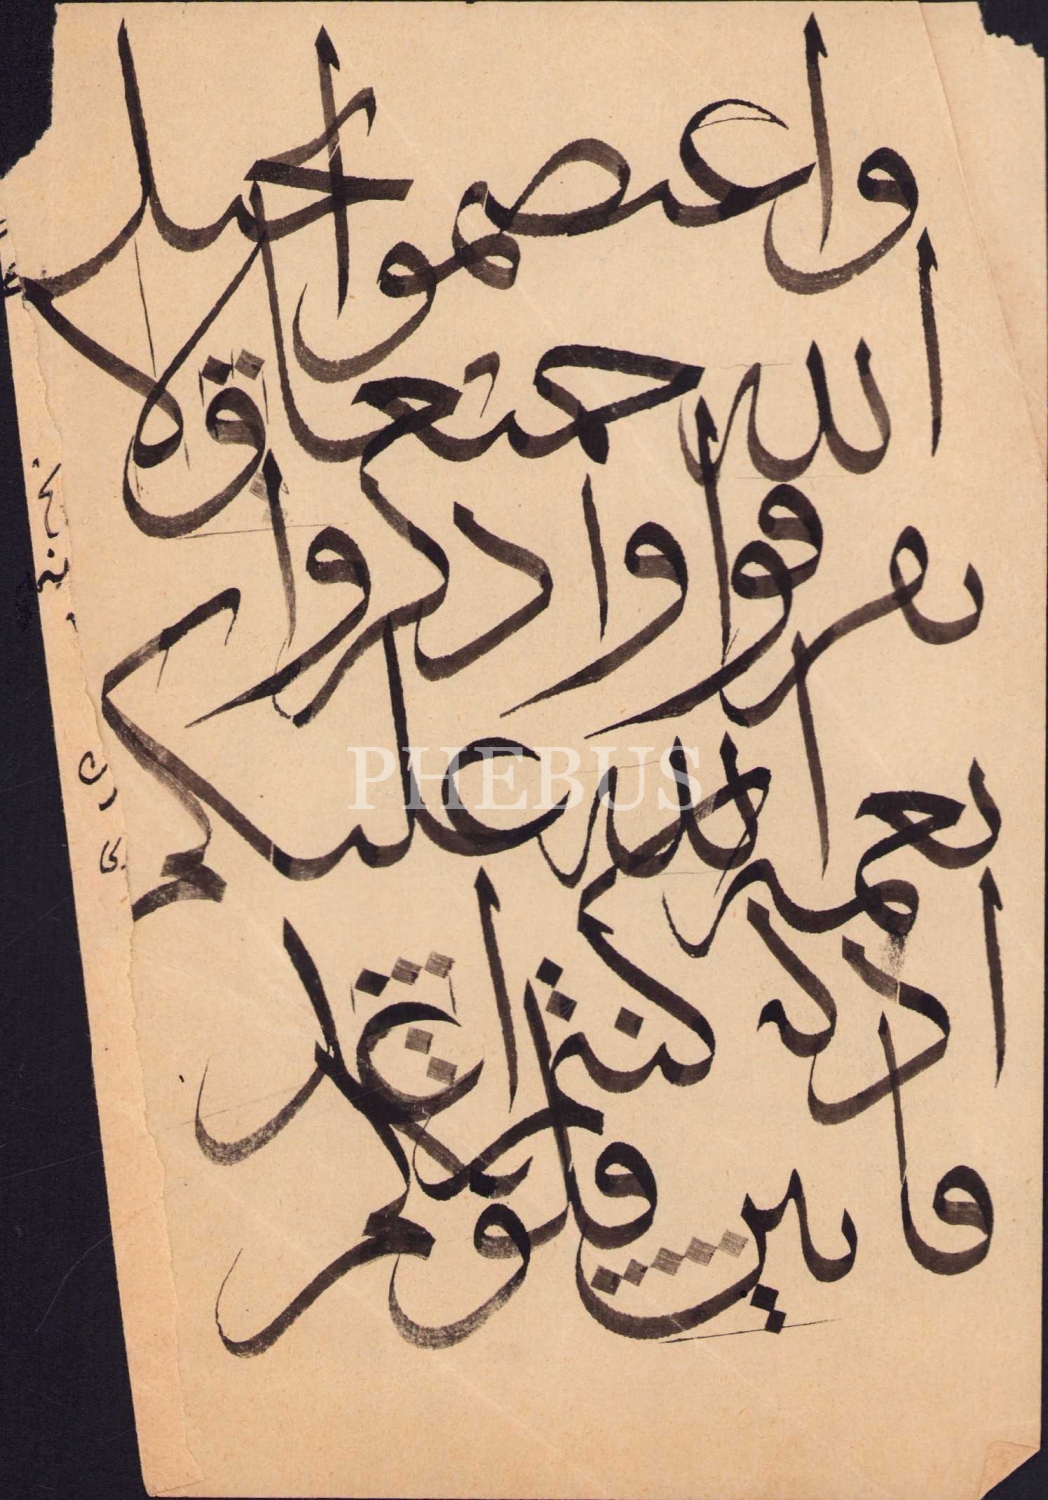 واعتصموا بحبل
الله جميعا ولا
تفرقوا واذكروا
نعمة الله عليكم
PHEBUS
اذ كنتم اعدا
فالف بين قلوبكم